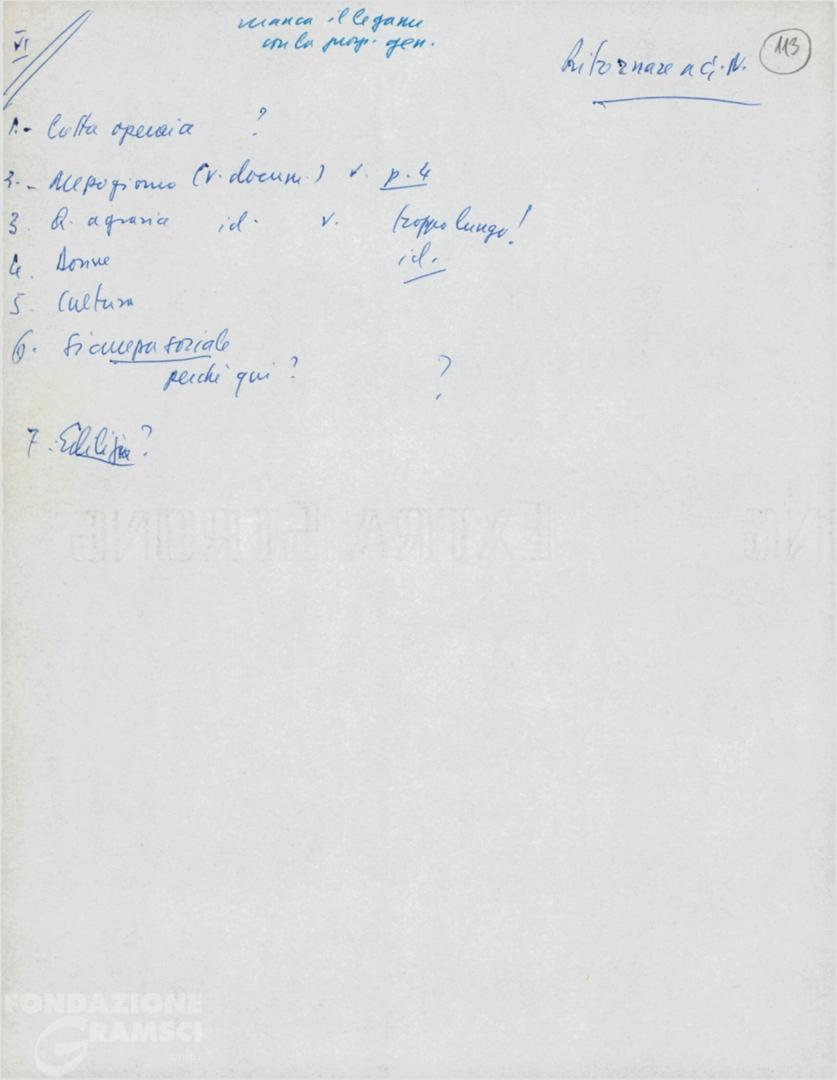 VI
manca il legame
con la prosp. gen.
Ritornare a G. N.
113
1.- Lotta operaia ?
2.- Mezzogiorno (v. docum.) v. p. 4
3. Q. agraria id. v. troppo lungo!
4. Donne id.
5. Cultura
6. Sicurezza sociale
perché qui ? ?
7. Edilizia?
EXTRA STRONG
NG
FONDAZIONE
GRAMSCI